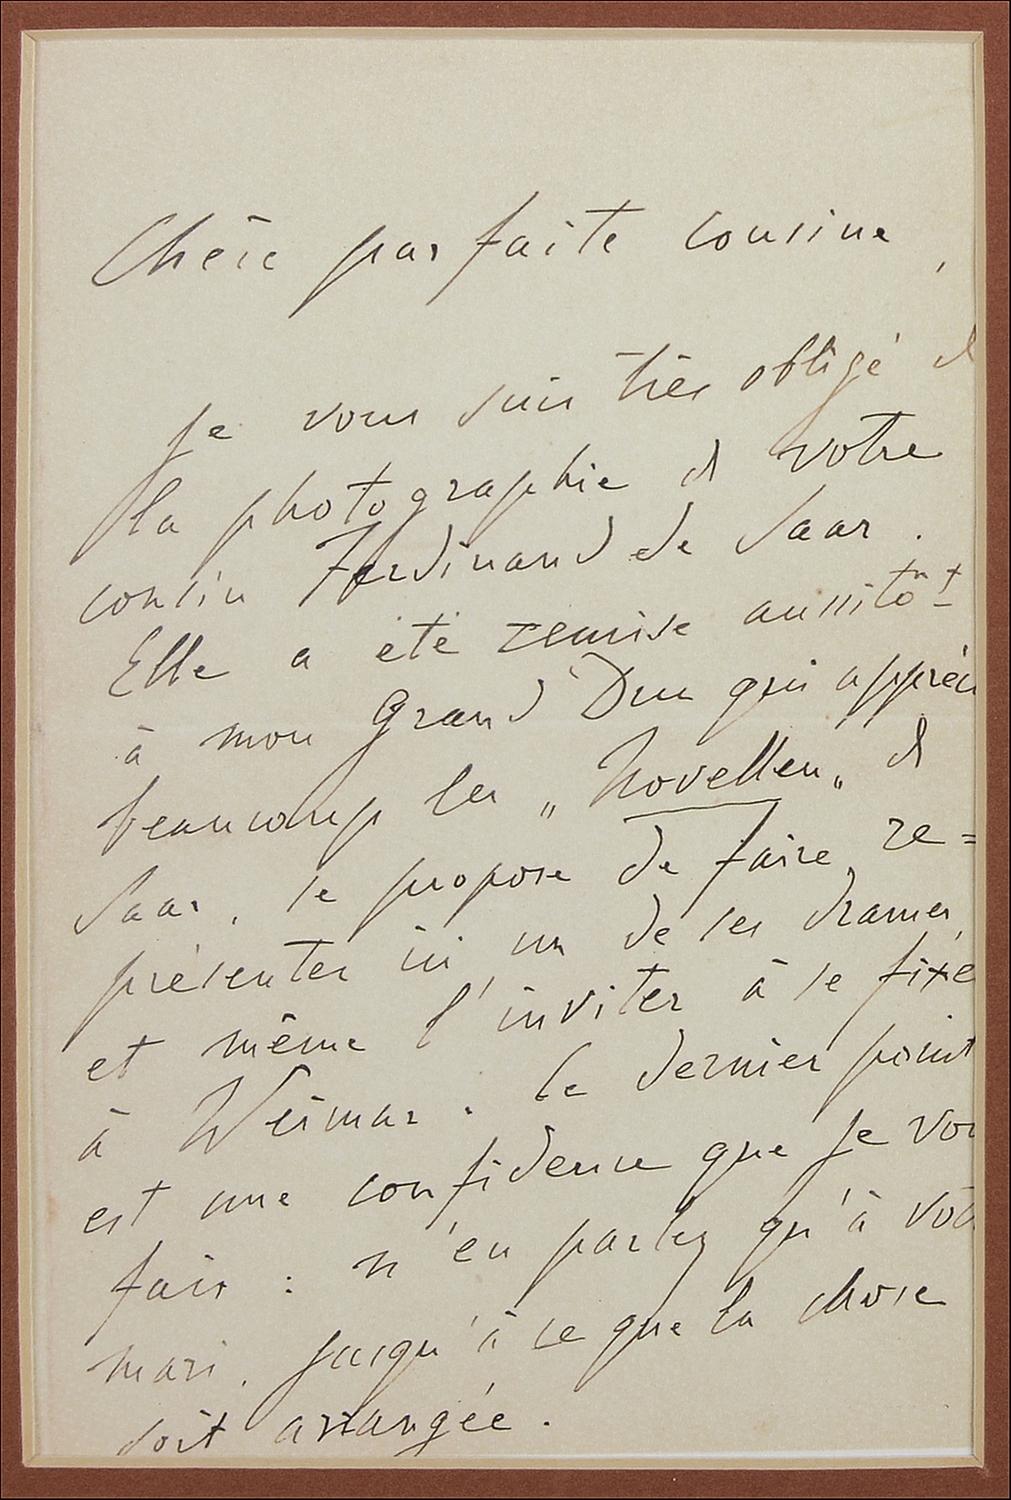 Chère parfaite cousine,
Je vous suis très obligé d
la photographie d votre
cousin Ferdinand de Saar.
Elle a été remise aussitôt
à mon Grand Duc qui appréci
beaucoup les „Novellen„ d
Saar, se propose de faire re=
présenter ici un de ses drames,
et même l'inviter à se fixe
à Weimar. Ce dernier point
est une confidence que je vou
fais : n'en parlez qu'à vot
mari, jusqu'à ce que la chose
soit arrangée.